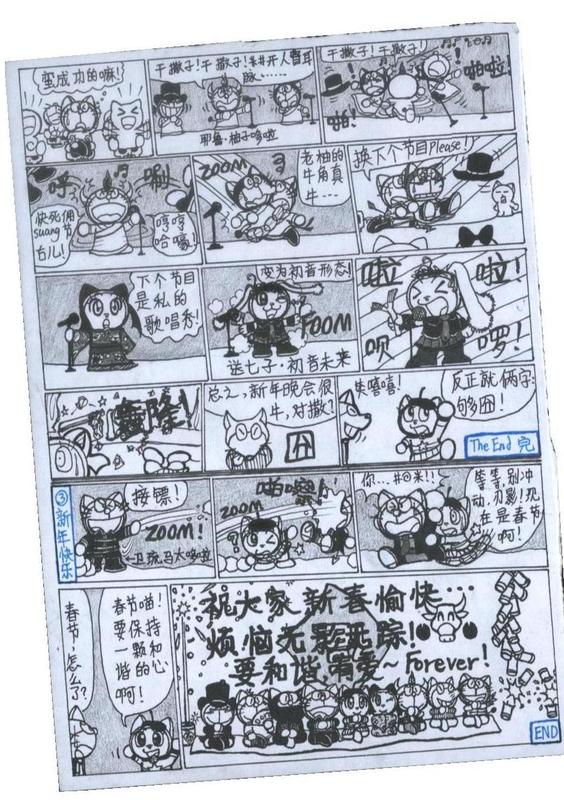 蛮成功的嘛!
干撒子!干撒子!
耶鲁·柚子哆啦
干撒子!干撒子!
啪啦!
啪!
呼
唰
快死俑节
suang
右儿!
哼哼
哈嚎!
ZOOM
老柚的
牛角真
牛…
换下个节目please!
下个节目
是私的
歌唱秀!
变为初音形态!
FOOM
送七子·初音未来
啦 啦!
呗 啰!
轰隆!
总之,新年晚会很
牛,对撒?
囧
失嘻嘻!
反正就俩字:
够囧!
The End 完
③新年快乐
接镖!
ZOOM!
ZOOM
你…#@来!!
等等,别冲
动,刃影!现
在是春节
啊!
春节,怎么了?
春节喵!
要保持
一颗和
谐的心
啊!
祝大家新春愉快…
烦恼无影无踪!
要和谐,有爱~Forever!
END